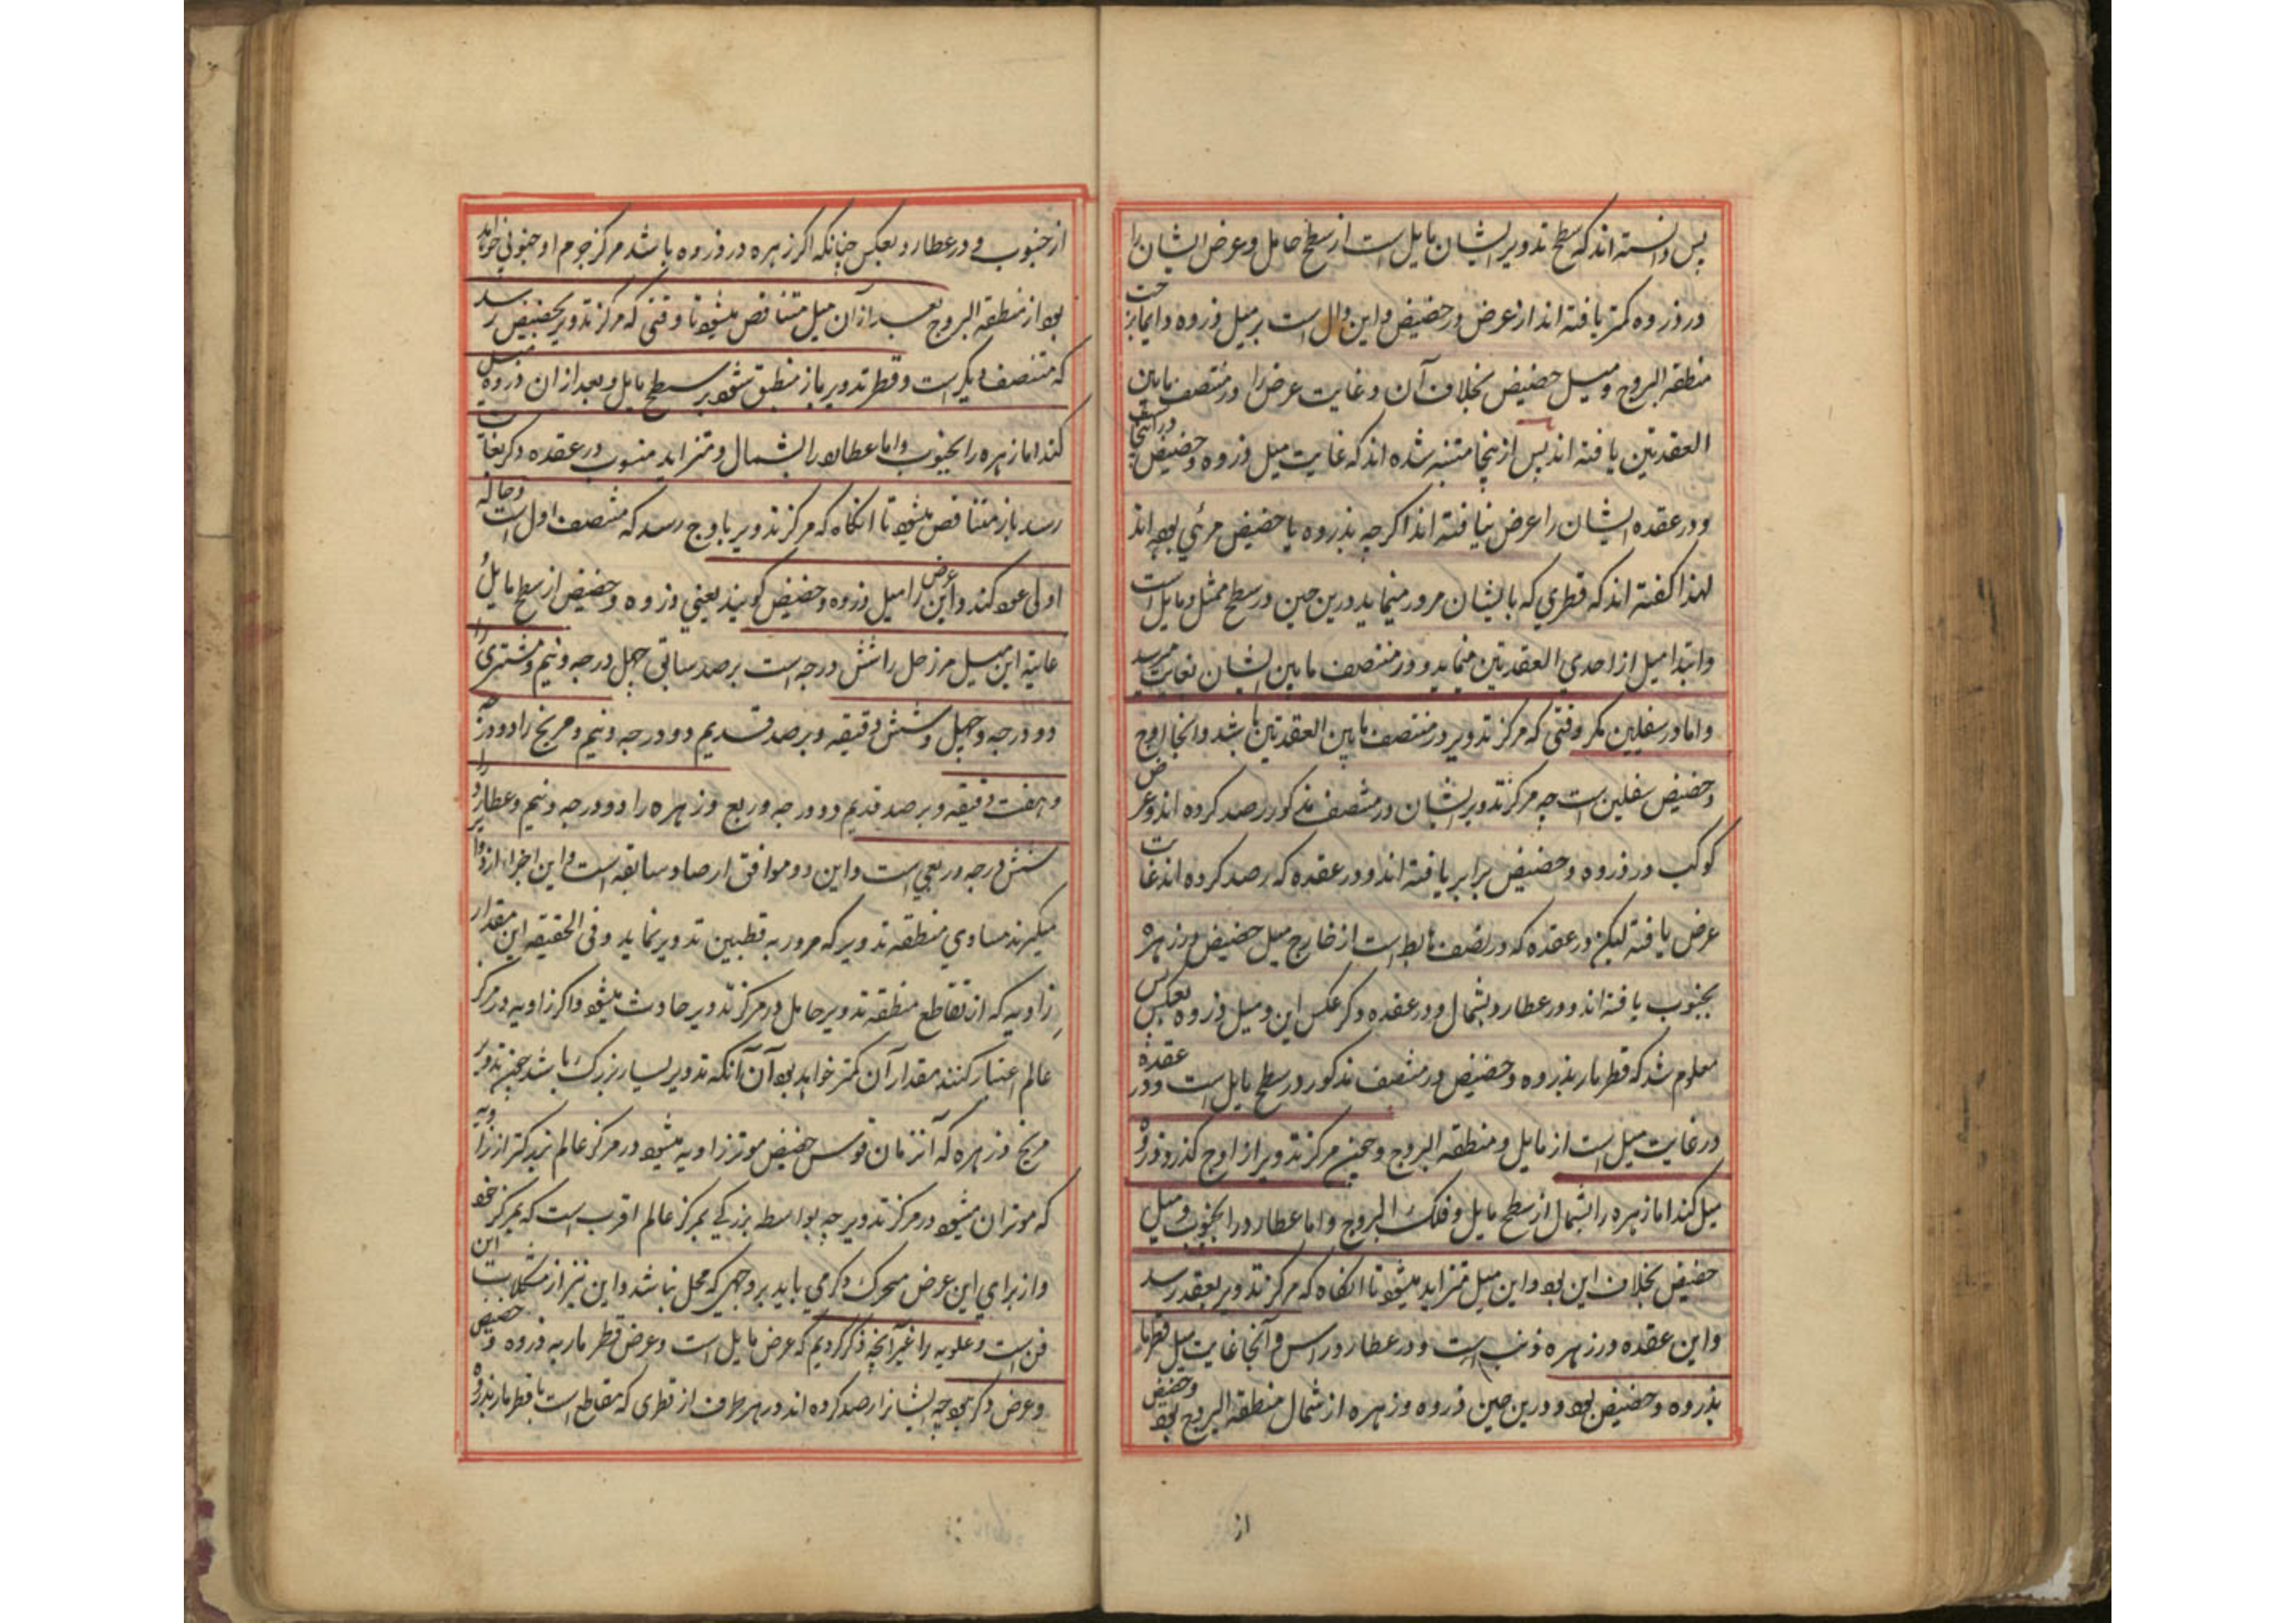 پس دانسته اند که سطح تدویر ایشان مایل است از سطح حامل و عرض ایشان را
در ذروه کمتر یافته اند از عرض در حضیض و این دال است بر میل ذروه دایما بز
منطقه البروج و میل حضیض بخلاف آن و غایت عرض را در منتصف مابین
العقدتین یافته اند پس از ینجا متنبه شده اند که غایت میل ذروه و حضیض در آنجاست
و در عقده ایشان را عرض نیافته اند اکر چه بذروه یا حضیض مرئی بوده اند
لهذا کفته اند که قطری که بایشان مرور مینماید درین حین در سطح ممثل و مایل است
وابتدا میل از احدی العقدتین مینماید و در منتصف مابین ایشان بغایت میرسد
و اما در سفلیین مکر وقتی که مرکز تدویر در منتصف مابین العقدتین باشد و آنجا اوج
و حضیض سفلیین است چه مرکز تدویر ایشان در منتصف مذکور رصد کرده اند و عرض
کوکب در ذروه و حضیض برابر یافته اند و در عقده که رصد کرده اند غایت
عرض یافته لیکن در عقده که در نصف هابط است از خارج میل حضیض در زهره
بجنوب یافته اند و در عطارد بشمال و در عقده دکر عکس این و میل ذروه بعکس پس
معلوم شد که قطر مار بذروه و حضیض در منتصف مذکور در سطح مایل است و در عقده
در غایت میل است از مایل و منطقه البروج و چون مرکز تدویر از اوج کذرد ذروه
میل کند اما زهره را بشمال از سطح مایل و فلک البروج و اما عطارد را بجنوب و میل
حضیض بخلاف این بود و این میل متزاید میشود تا آنکاه که مرکز تدویر بعقد رسد
و این عقده در زهره ذنب است و در عطارد راس و آنجا غایت میل قطر مار
بذروه و حضیض بود و درین حین ذروه زهره از شمال منطقه البروج بود و حضیض
از
از جنوب و در عطارد بعکس چنانکه اکر زهره در ذروه باشد مرکز جرم او جنوبی خواهد
بود از منطقه البروج بعد از آن میل متناقص میشود تا وقتی که مرکز تدویر بحضیض رسد
که منتصف دیکر است و قطر تدویر باز منطبق شود بر سطح مایل و بعد از ان ذروه میل
کند اما زهره را بجنوب و اما عطارد را بشمال و متزاید میشود در عقده دکر بغایت
رسد باز متناقص میشود تا آنکاه که مرکز تدویر باوج رسد که منتصف اول است و حاله
اولی عود کند و این عرض را میل ذروه و حضیض کویند یعنی ذروه و حضیض از سطح مایل
غایة این میل مر زحل را شش درجه است برصد سابق چهل درجه و نیم و مشتری را
دو درجه و چهل و شش دقیقه و برصد قدیم دو درجه و نیم و مریخ را دو درجه
و هفت دقیقه و برصد قدیم دو درجه و ربع و زهره را دو درجه و نیم و عطارد را
شش درجه و ربعی است و این دو موافق ارصاد سابقه است و این اجزا از دوایر
میکیرند مساوی منطقه تدویر که مرور به قطبین تدویر نماید و فی الحقیقه این مقدار
زاویه که از تقاطع منطقه تدویر حامل در مرکز تدویر حادث میشود و اکر زاویه در مرکز
عالم اعتبار کنند مقدار آن کمتر خواهد بود آن آنکه تدویر بسیار بزرک باشد چون تدویر
مریخ و زهره که آنزمان قوس حضیض موتر زاویه میشود در مرکز عالم بزرکتر از زاویه
که موتر ان میشود در مرکز تدویر چه بواسطه بزرکی بمرکز عالم اقرب است که بمرکز خود
و از برای این عرض محرک دکر می باید بر وجهی که مخل نباشد و این نیز از مشکلات این
فن است و علویه را غیر آنچه ذکر کردیم که عرض مایل است و عرض قطر مار به ذروه و حضیض
و عرض دکر نبود چه ایشانرا رصد کرده اند در هر طرف از قطری که مقاطع است با قطر مار بذروه